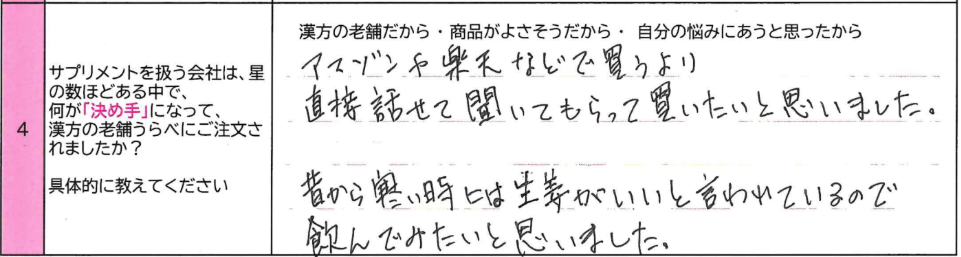 4
サプリメントを扱う会社は、星
の数ほどある中で、
何が「決め手」になって、
漢方の老舗うらべにご注文さ
れましたか？
具体的に教えてください
漢方の老舗だから・商品がよさそうだから・ 自分の悩みにあうと思ったから
アマゾンや楽天などで買うより
直接話せて聞いてもらって買いたいと思いました。
昔から寒い時には生姜がいいと言われているので
飲んでみたいと思いました。